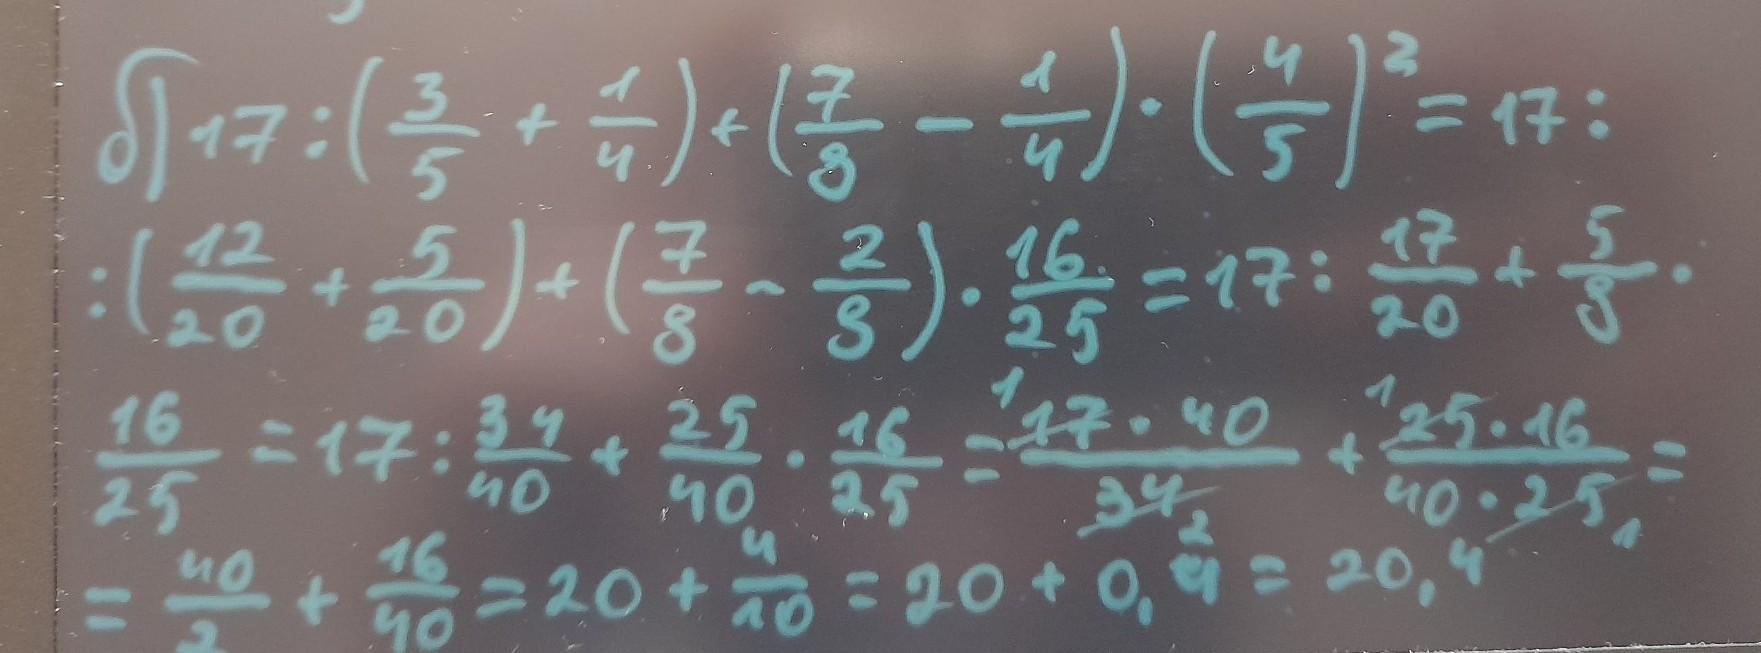 б) 17 : (3/5 + 1/4) + (7/8 - 1/4) · (4/5)² = 17 :
: (12/20 + 5/20) + (7/8 - 2/8) · 16/25 = 17 : 17/20 + 5/8 ·
16/25 = 17 : 34/40 + 25/40 · 16/25 = ¹17 · 40/34₂ + ¹25 · 16/40 · 25₁ =
= 40/2 + 16/40 = 20 + 4/10 = 20 + 0,4 = 20,4